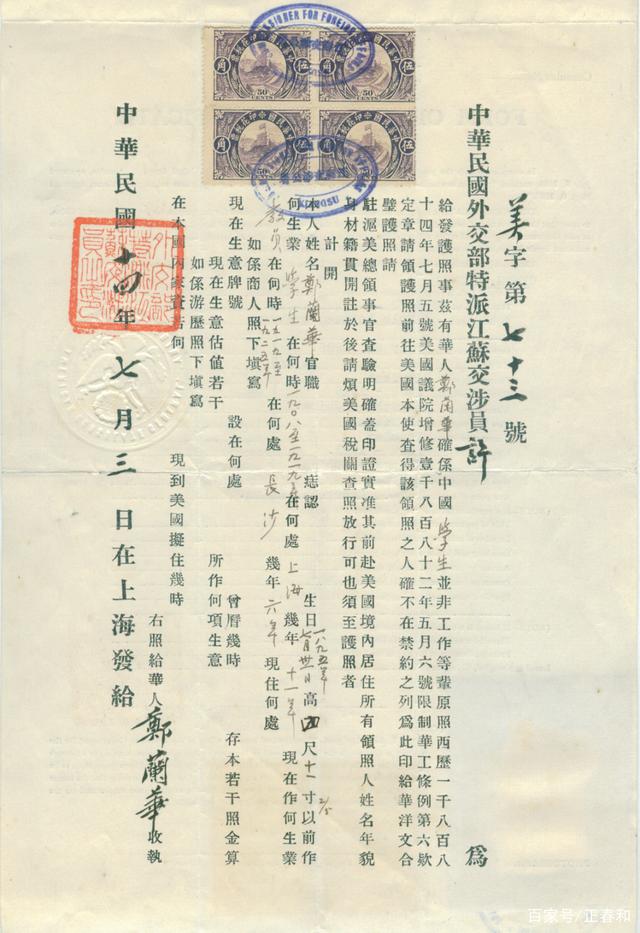 COMMISSIONER FOR FOREIGN
伍角
50
CENTS
伍角
50
CENTS
伍角
伍角
KIANGSU
美字第七十三號
中華民國外交部特派江蘇交涉員許 為
給發護照事茲有華人鄭蘭華確係中國學生並非工作等輩原照西歷一千八百八
十四年七月五號美國議院增修壹千八百八十二年五月六號限制華工條例第六欵
定章請領護照前往美國本使查得該領照之人確不在禁約之列為此印給華洋文合
璧護照請
駐滬美總領事官查驗明確蓋印證實准其前赴美國境內居住所有領照人姓名年貌
身材籍貫開註於後請煩美國稅關查照放行可也須至護照者
計開
本人姓名鄭蘭華官職 痣認 生日一八九五年 日高四尺十一寸以前作
何生業學生在何時一九〇八至一九一九年在何處上海幾年十一年現在作何生業
教員在何時一九一九至一九二五年在何處長沙幾年六年現住何處
如係商人照下填寫
現在生意牌號 設在何處 曾曆幾時 存本若干照金算
現在生意估值若干 所作何項生意
如係游歷照下填寫
在本國內家資若何 現到美國擬住幾時
右照給華人鄭蘭華收執
中華民國十四年七月三日在上海發給
百家号/正春和